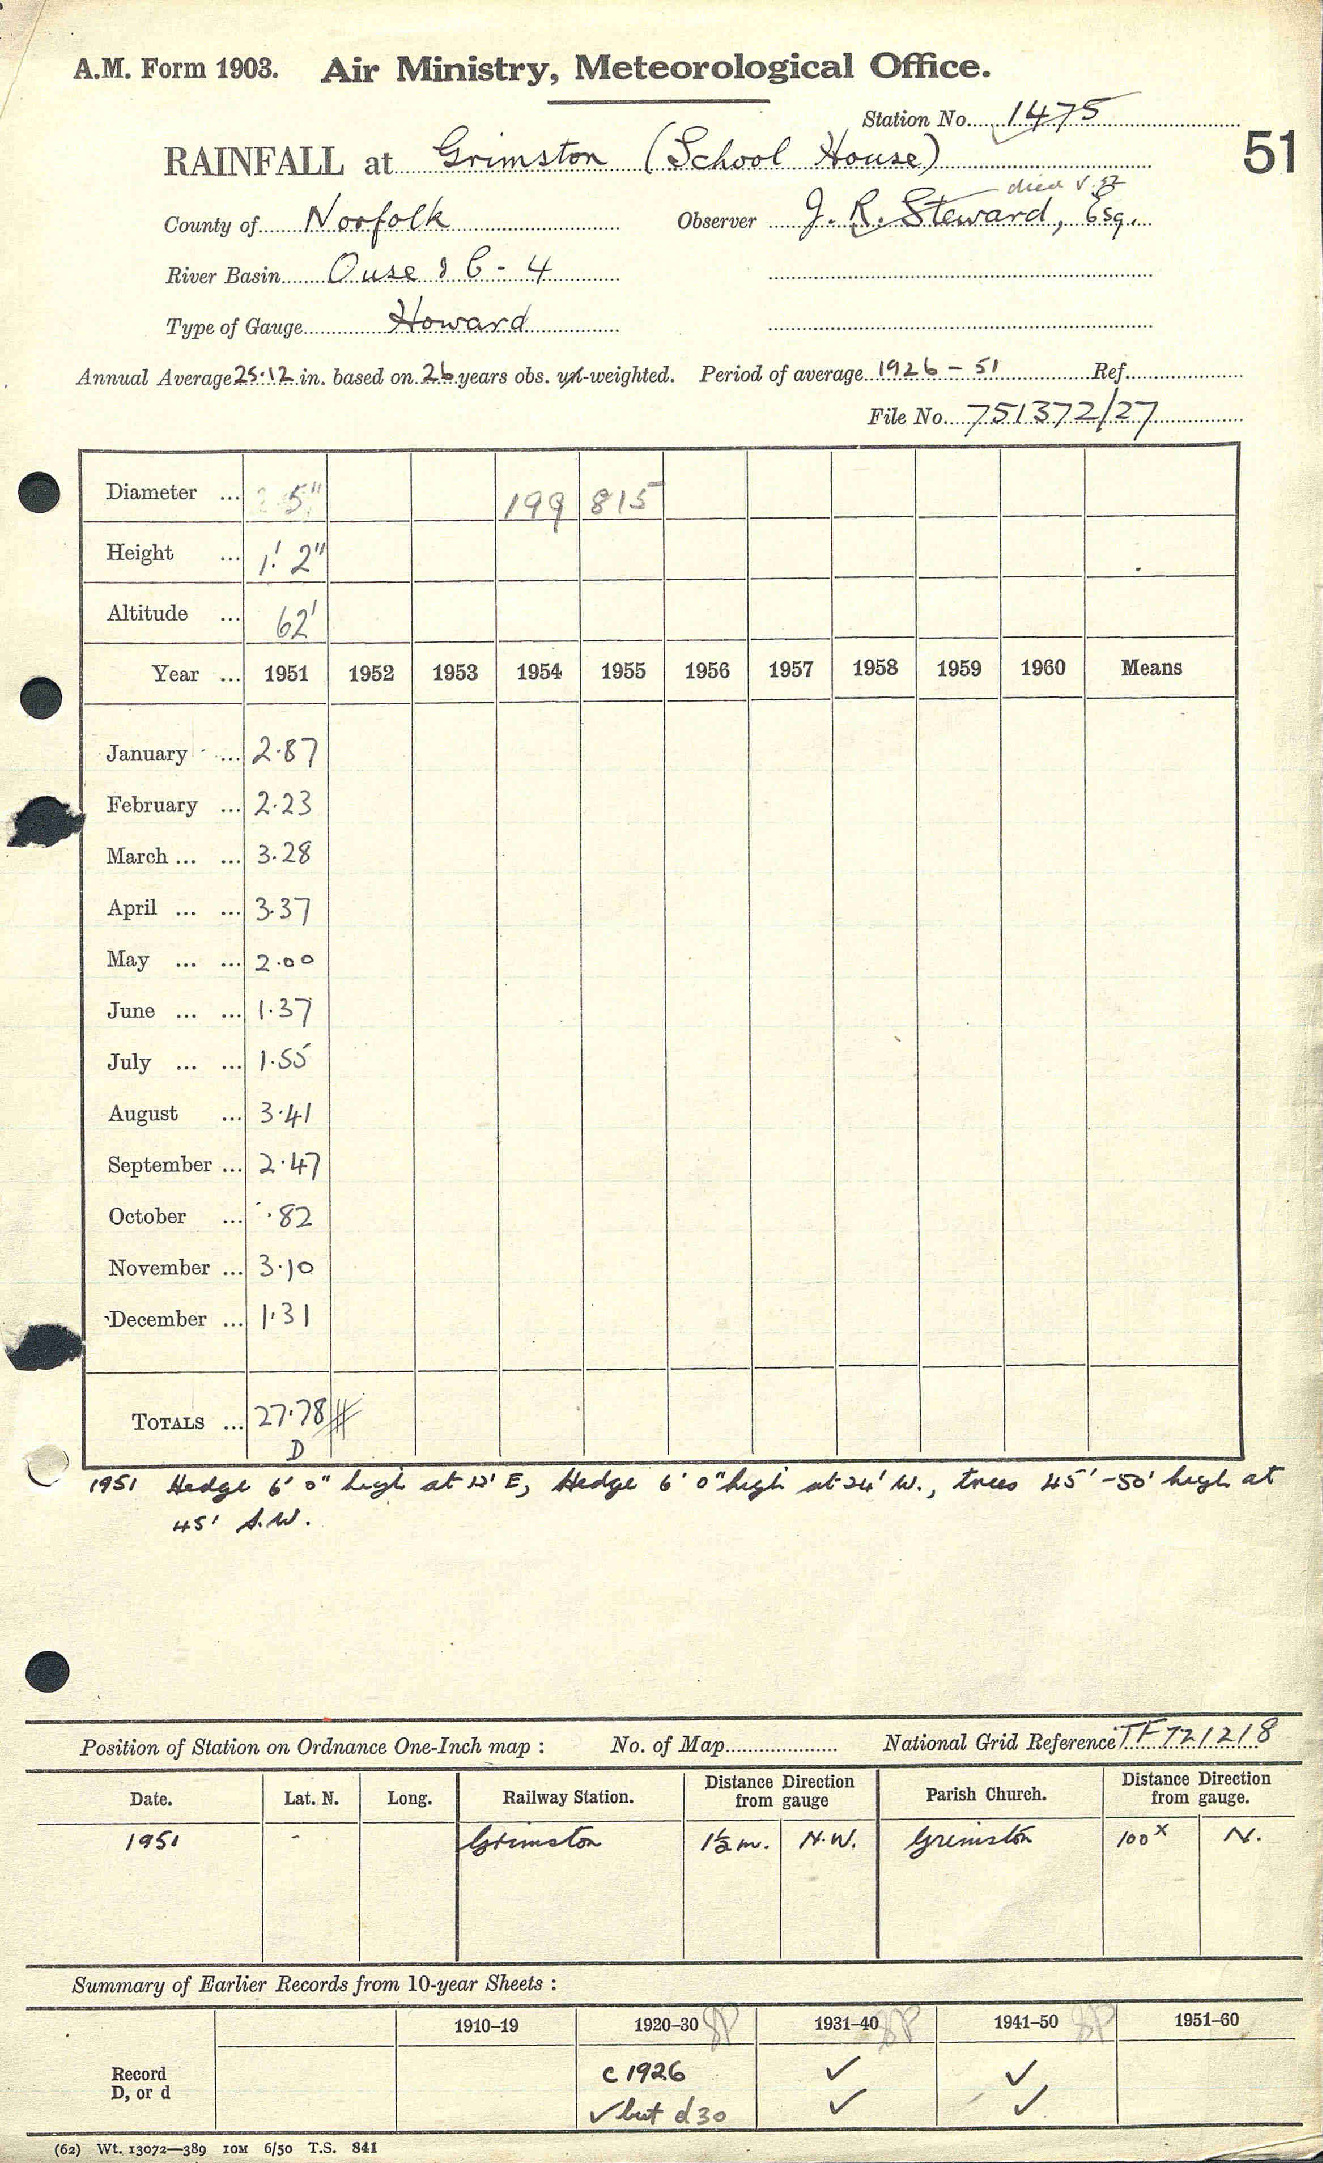 A.M. Form 1903. Air Ministry, Meteorological Office.
Station No. 1475
51
RAINFALL at Grimston (School House)
died V.52
County of Norfolk Observer J. R. Steward, Esq.
River Basin Ouse &
Type of Gauge Howard
Annual Average 25.12 in. based on 26 years obs. un-weighted. Period of average 1926 - 51 Ref.
File No. 751372/27
Diameter ... 5" 199 815
Height ... 1' 2"
Altitude ... 62'
Year ... 1951 1952 1953 1954 1955 1956 1957 1958 1959 1960 Means
January ... 2.87
February ... 2.23
March ... ... 3.28
April ... ... 3.37
May ... ... 2.00
June ... ... 1.37
July ... ... 1.55
August ... 3.41
September ... 2.47
October ... .82
November ... 3.10
December ... 1.31
TOTALS ... 27.78 #
D
1951 Hedge 6' 0" high at 12' E, Hedge 6' 0" high at 24' W., trees 45'-50' high at
45' S.W.
Position of Station on Ordnance One-Inch map : No. of Map National Grid Reference TF 721218
Date. Lat. N. Long. Railway Station. Distance Direction from gauge Parish Church. Distance Direction from gauge.
1951 - Grimston 1½ m. N.W. Grimston 100x N.
Summary of Earlier Records from 10-year Sheets :
1910–19 1920–30 1931–40 1941–50 1951–60
Record c 1926 ✓ ✓
D, or d ✓ but d30 ✓ ✓
(62) Wt. 13072—389 10M 6/50 T.S. 841